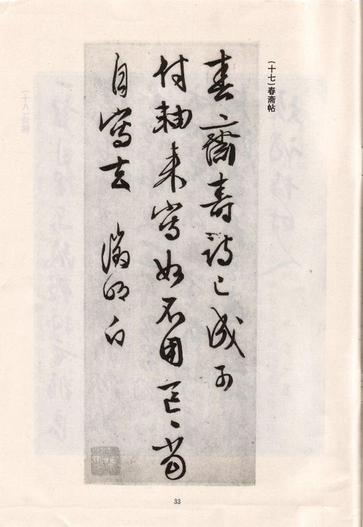 (十七)春斋帖
春斋寿诗已成可
付轴来写如不用
自写去 徵明白
33